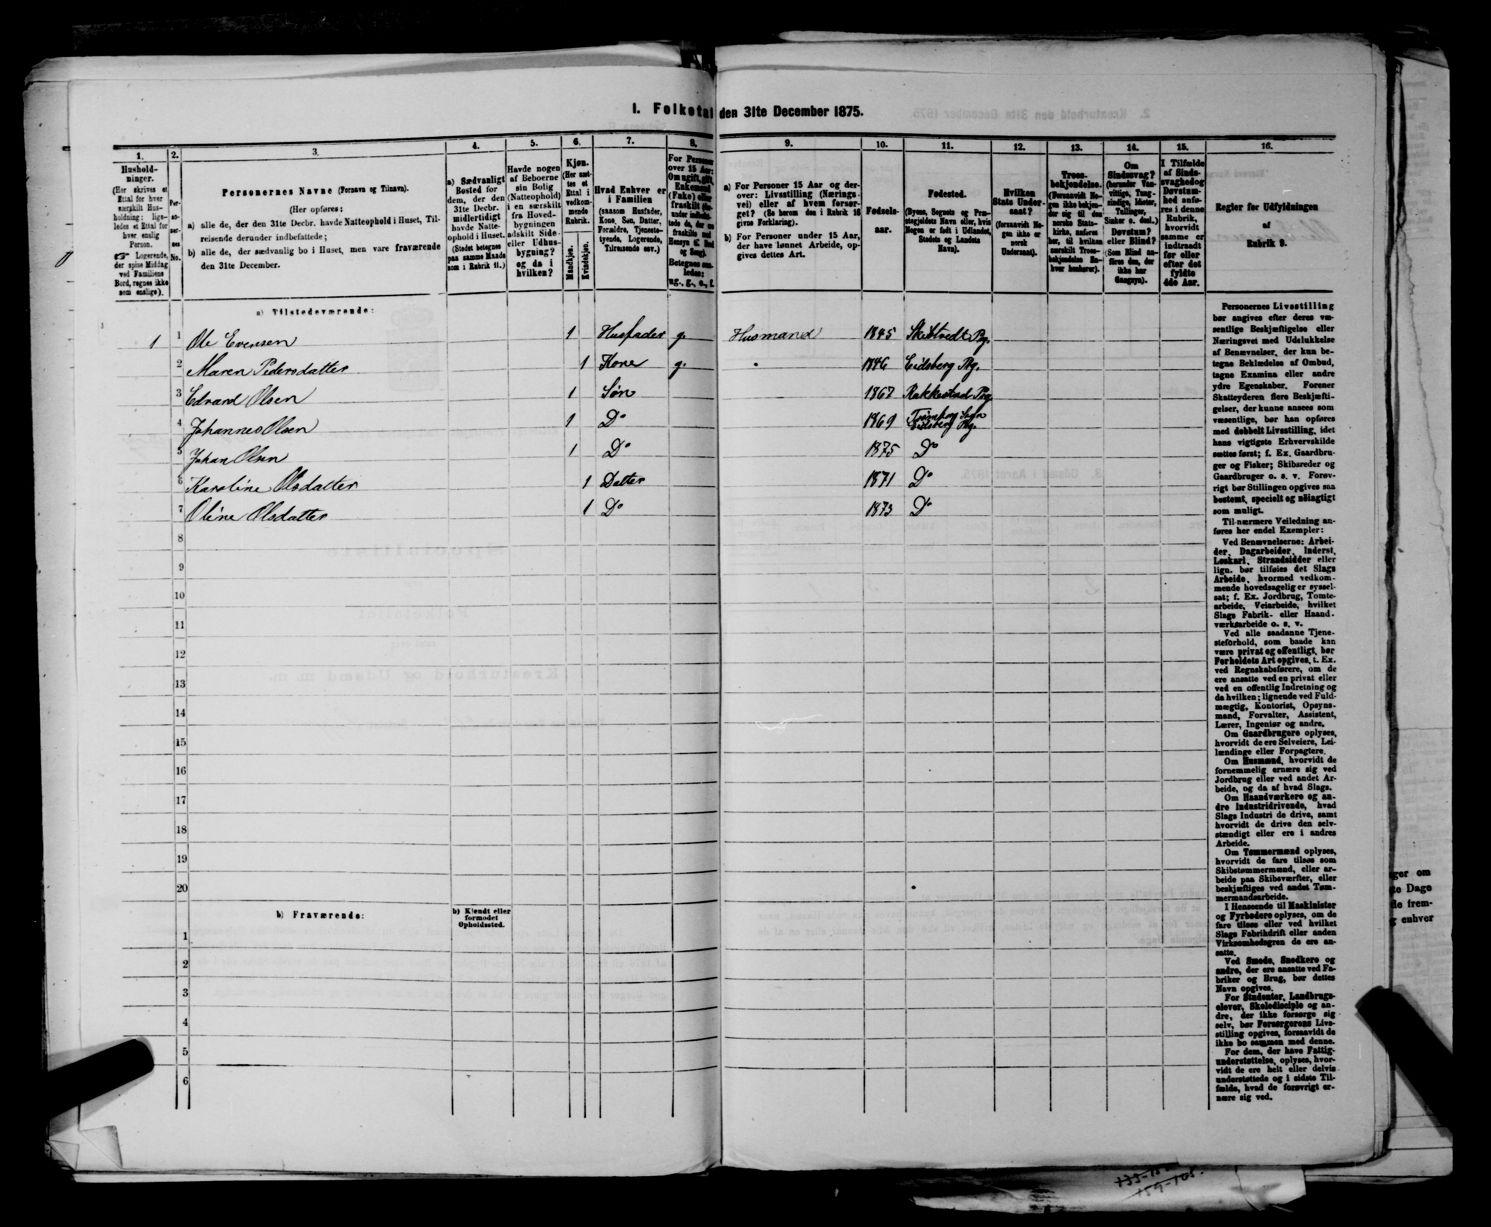 I. Folketal den 31te December 1875.
1.
Hushold-
ninger.
(Her skrives et
Ettal for hver
særskilt Hus-
holdning; lige-
ledes et Ettal for
hver enslig
Person.
☞ Logerende,
der spise Middag
ved Familiens
Bord, regnes ikke
som enslige).
2.
Per-
so-
ner-
nes
No.
3.
Personernes Navne (Fornavn og Tilnavn).
(Her opføres:
a) alle de, der den 31te Decbr. havde Natteophold i Huset, Til-
reisende derunder indbefattede;
b) alle de, der sædvanlig bo i Huset, men vare fraværende
den 31te December.
4.
a) Sædvanligt
Bosted for
dem, der den
31te Decbr.
midlertidigt
havde Natte-
ophold i Huset.
(Stedet betegnes
paa samme Maade
som i Rubrik 11.)
5.
Havde nogen
af Beboerne
sin Bolig
(Natteophold)
i en særskilt
fra Hoved-
bygningen
adskilt Side-
eller Udhus-
bygning?
og da i
hvilken?
6.
Kjøn.
(Her sæt-
tes et
Ettal i
vedkom-
mende
Rubrik.
Mandkjøn.
Kvindekjøn.
7.
Hvad Enhver er
i Familien
(saasom Husfader,
Kone, Søn, Datter,
Forældre, Tjeneste-
tyende, Logerende,
Tilreisende osv.)
8.
For Personer
over 15 Aar:
Om ugift, gift,
Enkemand
(Enke) eller
fraskilt
9.
a) For Personer 15 Aar og der-
over: Livsstilling (Nærings-
vei) eller af hvem forsør-
get? (Se herom den i Rubrik 16
givne Forklaring).
b) For Personer under 15 Aar,
der have lønnet Arbeide, op-
gives dettes Art.
10.
Fødsels-
aar.
11.
Fødested.
(Byens, Sognets og Præ-
stegjeldets Navn eller, hvis
Nogen er født i Udlandet,
Stedets og Landets
Navn).
12.
Hvilken
Stats Under-
saat?
(forsaavidt No-
gen ikke er
norsk
Undersaat).
13.
Troes-
bekjendelse.
(Forsaavidt No-
gen ikke bekjen-
der sig til den
norske Stats-
kirke, anføres
her, til hvilken
særskilt Troes-
bekjendelse En-
hver henhører).
14.
Om
Sindssvag?
(herunder Van-
vittige, Tung-
sindige, Idioter,
Tullinger,
Sinker o. desl.)
Døvstum?
eller Blind?
(Som Blind an-
føres den, der
ikke har
Gangsyn).
15.
I Tilfælde
af Sinds-
svaghed og
Døvstum-
hed anfø-
res i denne
Rubrik,
hvorvidt
samme er
indtraadt
før eller
efter det
fyldte
4de Aar.
16.
Regler for Udfyldningen
af
Rubrik 9.
a) Tilstedeværende:
1 1 Ole Evensen 1 Husfader g. Husmand 1845 Skibtvedt Pg.
2 Maren Pedersdatter 1 Kone g. 1846 Eidsberg Pg.
3 Edvard Olsen 1 Søn 1867 Rakkestad Pg.
4 Johannes Olsen 1 Do 1869 Trømborg Sogn Eidsberg Pg.
5 Johan Olsen 1 Do 1875 Do
6 Karoline Olsdatter 1 Datter 1871 Do
7 Oline Olsdatter 1 Do 1873 Do
8
9
10
11
12
13
14
15
16
17
18
19
20
b) Fraværende:
b) Kjendt eller
formodet
Opholdssted.
1
2
3
4
5
6
Personernes Livsstilling
bør angives efter deres væ-
sentlige Beskjæftigelse eller
Næringsvei med Udelukkelse
af Benævnelser, der kun be-
tegne Beklædelse af Ombud,
tagne Examina eller andre
ydre Egenskaber. Forener
Skatteyderen flere Beskjæfti-
gelser, der kunne ansees som
væsentlige, bør han opføres
med dobbelt Livsstilling, idet
hans vigtigste Erhvervskilde
sættes først; f. Ex. Gaardbru-
ger og Fisker; Skibsreder og
Gaardbruger o. s. v. Forøv-
rigt bør Stillingen opgives saa
bestemt, specielt og nøiagtigt
som muligt.
Til nærmere Veiledning an-
føres her endel Exempler:
Ved Benævnelserne: Arbei-
der, Dagarbeider, Inderst,
Løskarl, Strandsidder eller
lign. bør tilføies det Slags
Arbeide, hvormed vedkom-
mende hovedsagelig er syssel-
sat; f. Ex. Jordbrug, Tomte-
arbeide, Veiarbeide, hvilket
Slags Fabrik- eller Haand-
værksarbeide o. s. v.
Ved alle saadanne Tjene-
steforhold, som baade kan
være privat og offentligt, bør
Forholdets Art opgives, t. Ex.
ved Regnskabsførere, om de
ere ansatte ved en privat eller
ved en offentlig Indretning og
da hvilken; lignende ved Fuld-
mægtig, Kontorist, Opsyns-
mand, Forvalter, Assistent,
Lærer, Ingeniør og andre.
Om Gaardbrugere oplyses,
hvorvidt de ere Selveiere, Lei-
lændinge eller Forpagtere.
Om Husmænd, hvorvidt de
fornemmelig ernære sig ved
Jordbrug eller ved andet Ar-
beide, og da af hvad Slags.
Om Haandværkere og an-
dre Industridrivende, hvad
Slags Industri de drive, samt
hvorvidt de drive den selv-
stændigt eller ere i andres
Arbeide.
Om Tømmermænd oplyses,
hvorvidt de fare tilsøs som
Skibstømmermænd, eller ar-
beide paa Skibsværfter, eller
beskjæftiges ved andet Tøm-
mermandsarbeide.
I Henseende til Maskinister
og Fyrbødere oplyses, om de
fare tilsøs eller ved hvilket
Slags Fabrikdrift eller anden
Virksomhedsgren de ere an-
satte.
Ved Smede, Snedkere og
andre, der ere ansatte ved Fa-
briker og Brug, bør dettes
Navn opgives.
For Studenter, Landbrugs-
elever, Skoledisciple og an-
dre, der ikke forsørge sig
selv, bør Forsørgerens Livs-
stilling opgives, forsaavidt de
ikke bo sammen med denne.
For dem, der have Fattig-
understøttelse, oplyses, hvor-
vidt de ere helt eller delvis
understøttede og i sidste Til-
fælde, hvad de forøvrigt er-
nære sig ved.